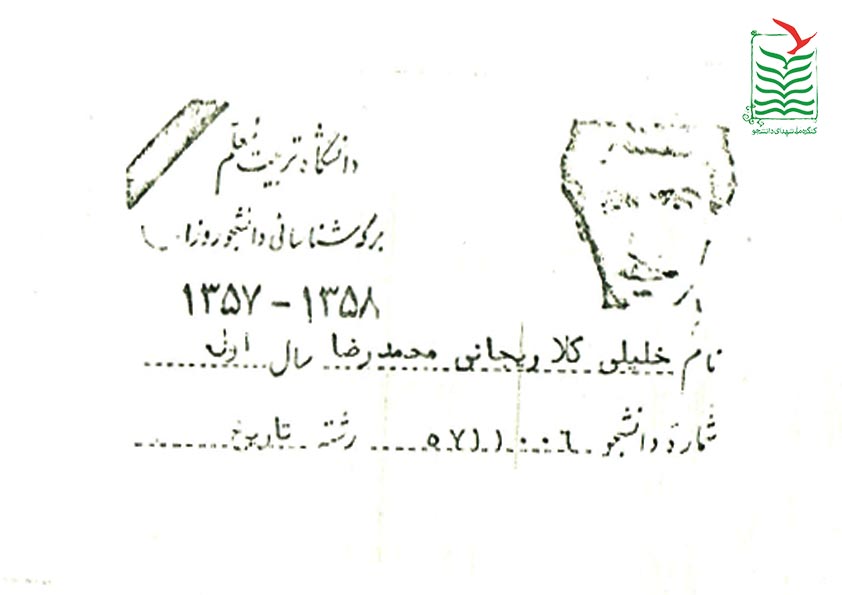 کنگره ملی شهدای دانشجو
دانشگاه تربیت معلم
برگه شناسائی دانشجو روزانه
۱۳۵۷ - ۱۳۵۸
نام خلیلی کلا ریحانی محمدرضا سال اول
شماره دانشجو ۵۷۱۱۰۰۶ رشته تاریخ